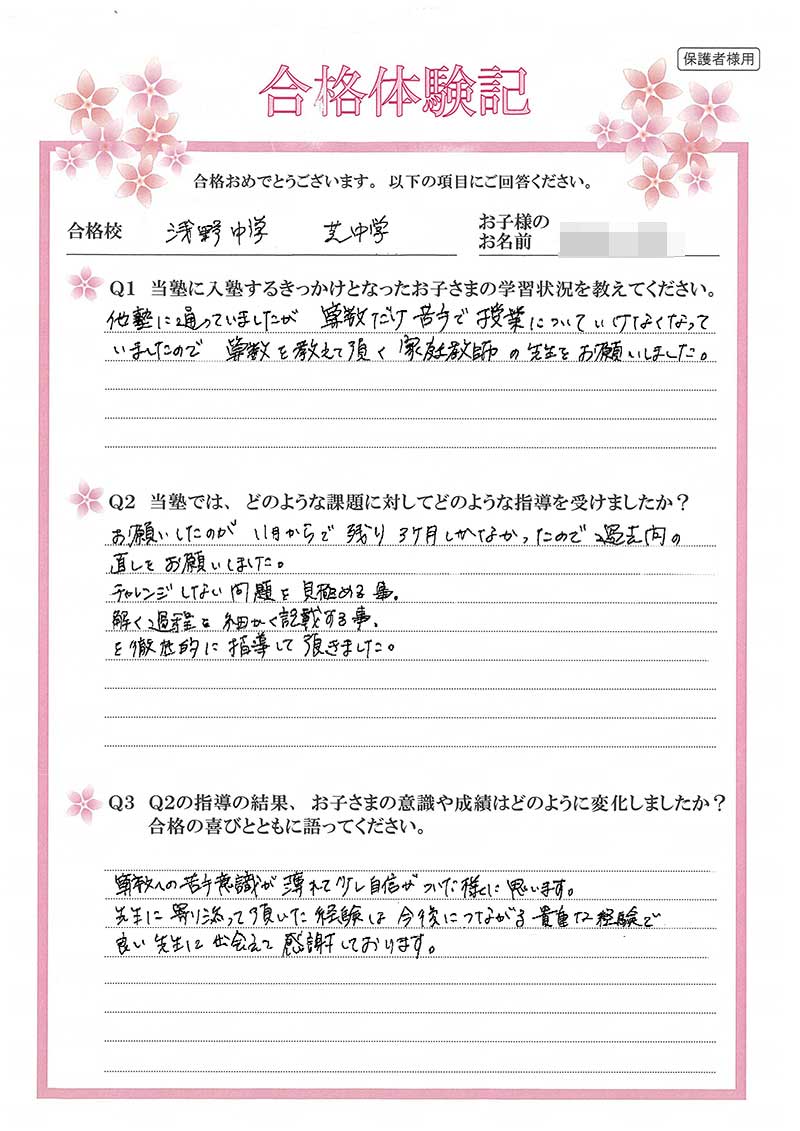 保護者様用
合格体験記
合格おめでとうございます。以下の項目にご回答ください。
合格校 浅野中学 芝中学
お子様の
お名前
Q1 当塾に入塾するきっかけとなったお子さまの学習状況を教えてください。
他塾に通っていましたが 算数だけ苦手で授業についていけなくなって
いましたので 算数を教えて頂く家庭教師の先生をお願いしました。
Q2 当塾では、どのような課題に対してどのような指導を受けましたか？
お願いしたのが 11月からで残り3ヶ月しかなかったので過去問の
直しをお願いしました。
チャレンジしない問題を見極める事。
解く過程を細かく記載する事。
を徹底的に指導して頂きました。
Q3 Q2の指導の結果、お子さまの意識や成績はどのように変化しましたか？
合格の喜びとともに語ってください。
算数への苦手意識が薄れて少し自信がついた様に思います。
先生に寄り添って頂いた経験は今後につながる貴重な経験で
良い先生に出会えて感謝しております。